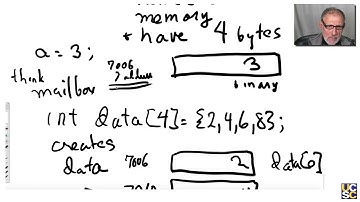 memory
+ have 4 bytes
a = 3;
7006
address
3
think
mailbox
binary
int data[4] = {2,4,6,8};
creates
data 7006 2 data[0]
UC
SC